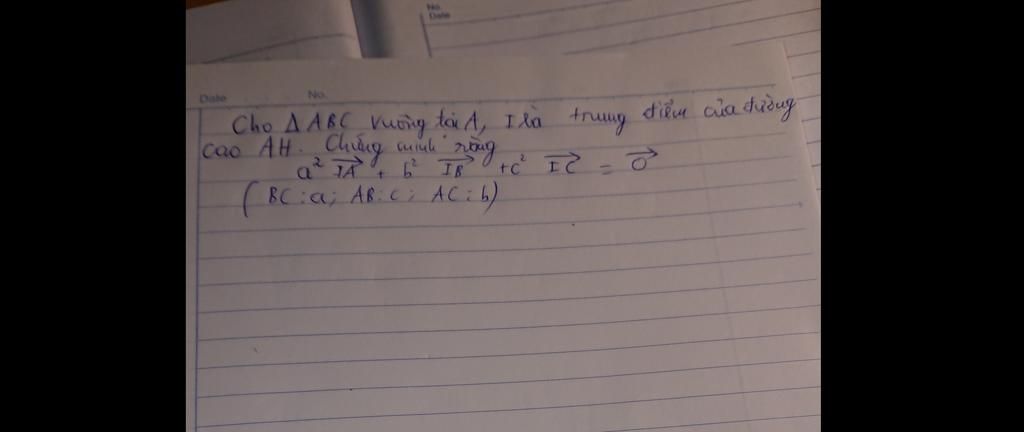 No.
Date
Date No.
Cho Δ ABC vuông tại A, I là trung điểm của đường
cao AH. Chứng minh rằng
a² \overrightarrow{IA} + b² \overrightarrow{IB} + c² \overrightarrow{IC} = \overrightarrow{O}
( BC : a ; AB : c ; AC : b)